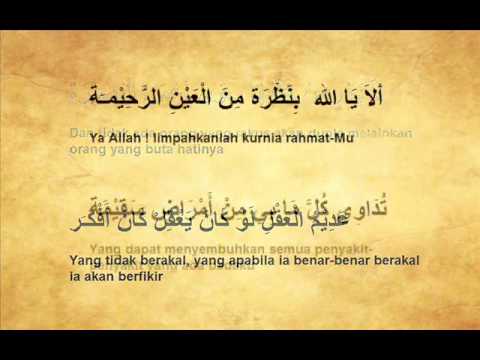 ألاَ يَا الله بِنَظْرَة مِنَ الْعَيْنِ الرَّحِيْمَة
Ya Allah ! limpahkanlah kurnia rahmat-Mu
Dan tidak melainkan
orang yang buta hatinya
تُدَاوِي كُلَّ مَا بِي مِنْ أَمْرَاضٍ سَقِيْمَة
عَدِيْمُ الْعَقْلِ لَوْ كَانَ يَعْقِلْ كَانَ أَفْكَرْ
Yang dapat menyembuhkan semua penyakit-
penyakit yang ada padaku
Yang tidak berakal, yang apabila ia benar-benar berakal
ia akan berfikir